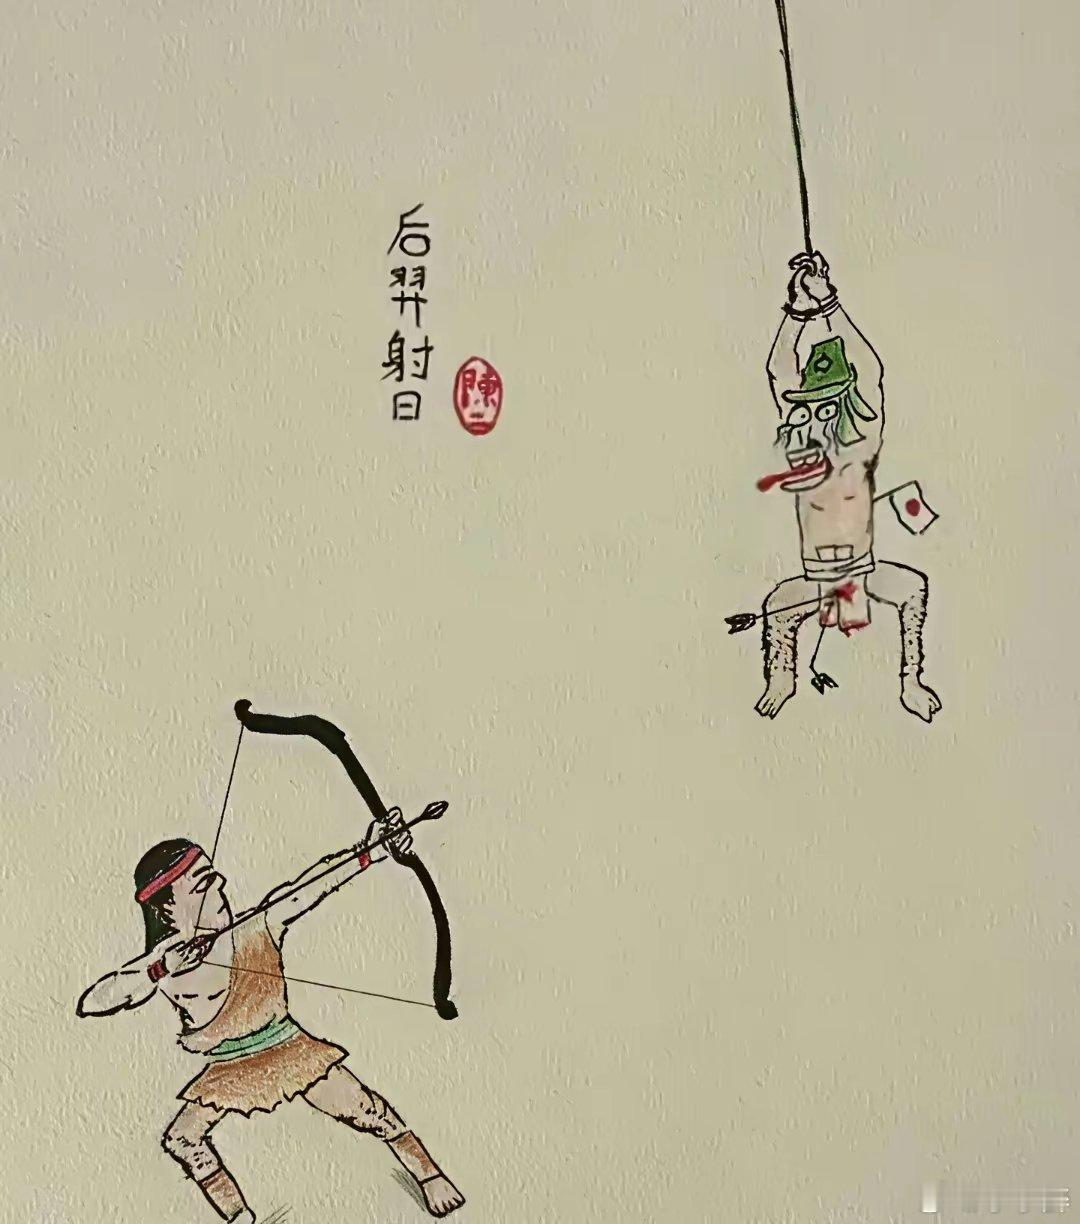 后羿射日
陳